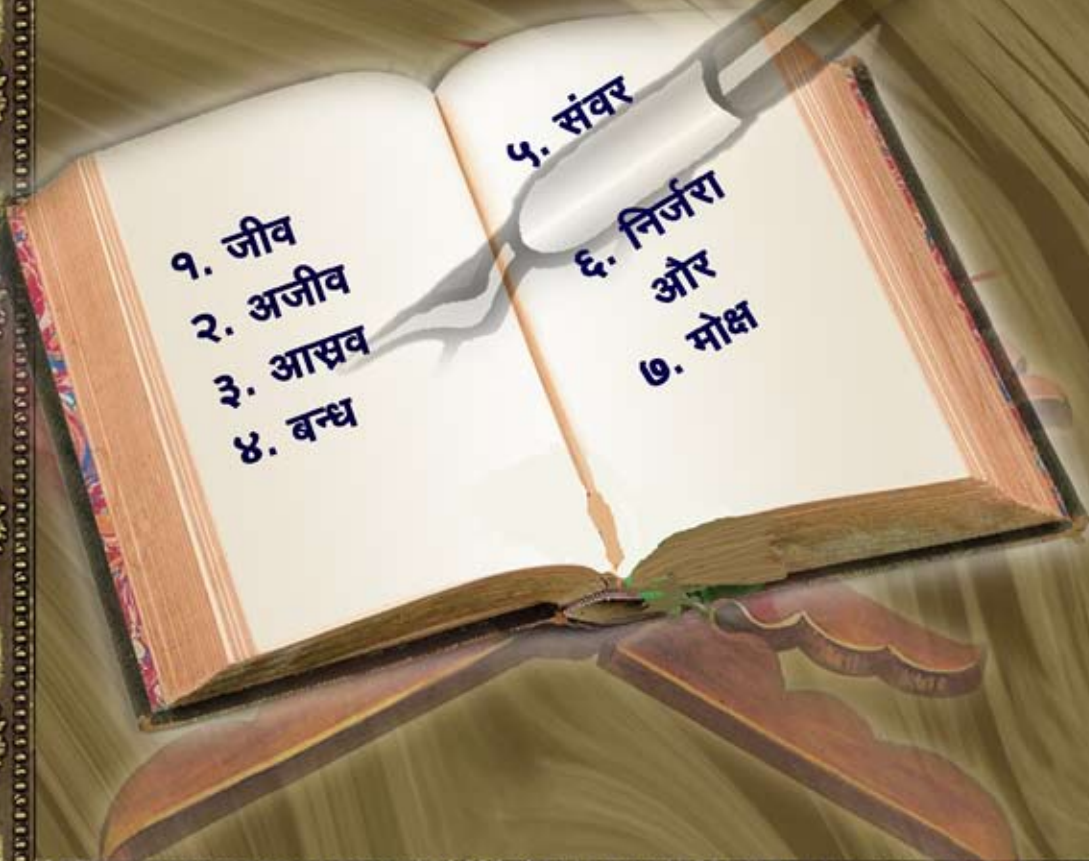 १. जीव
२. अजीव
३. आस्रव
४. बन्ध
५. संवर
६. निर्जरा
और
७. मोक्ष